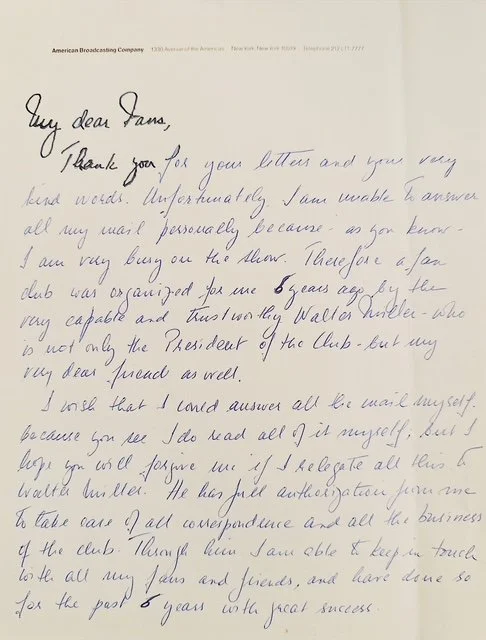 American Broadcasting Company 1330 Avenue of the Americas New York, New York 10019 Telephone
My dear Fans,
Thank you for your letters and your very
kind words. Unfortunately, I am unable to answer
all my mail personally because - as you know -
I am very busy on the show. Therefore a fan
club was organized for me 6 years ago by the
very capable and trustworthy Walter Miller - who
is not only the President of the Club - but my
very dear friend as well.
I wish that I could answer all the mail myself.
because you see I do read all of it myself, but I
hope you will forgive me if I relegate all this to
Walter Miller. He has full authorization from me
to take care of all correspondence and all the business
of the club. Through him I am able to keep in touch
with all my fans and friends, and have done so
for the past 6 years with great success.